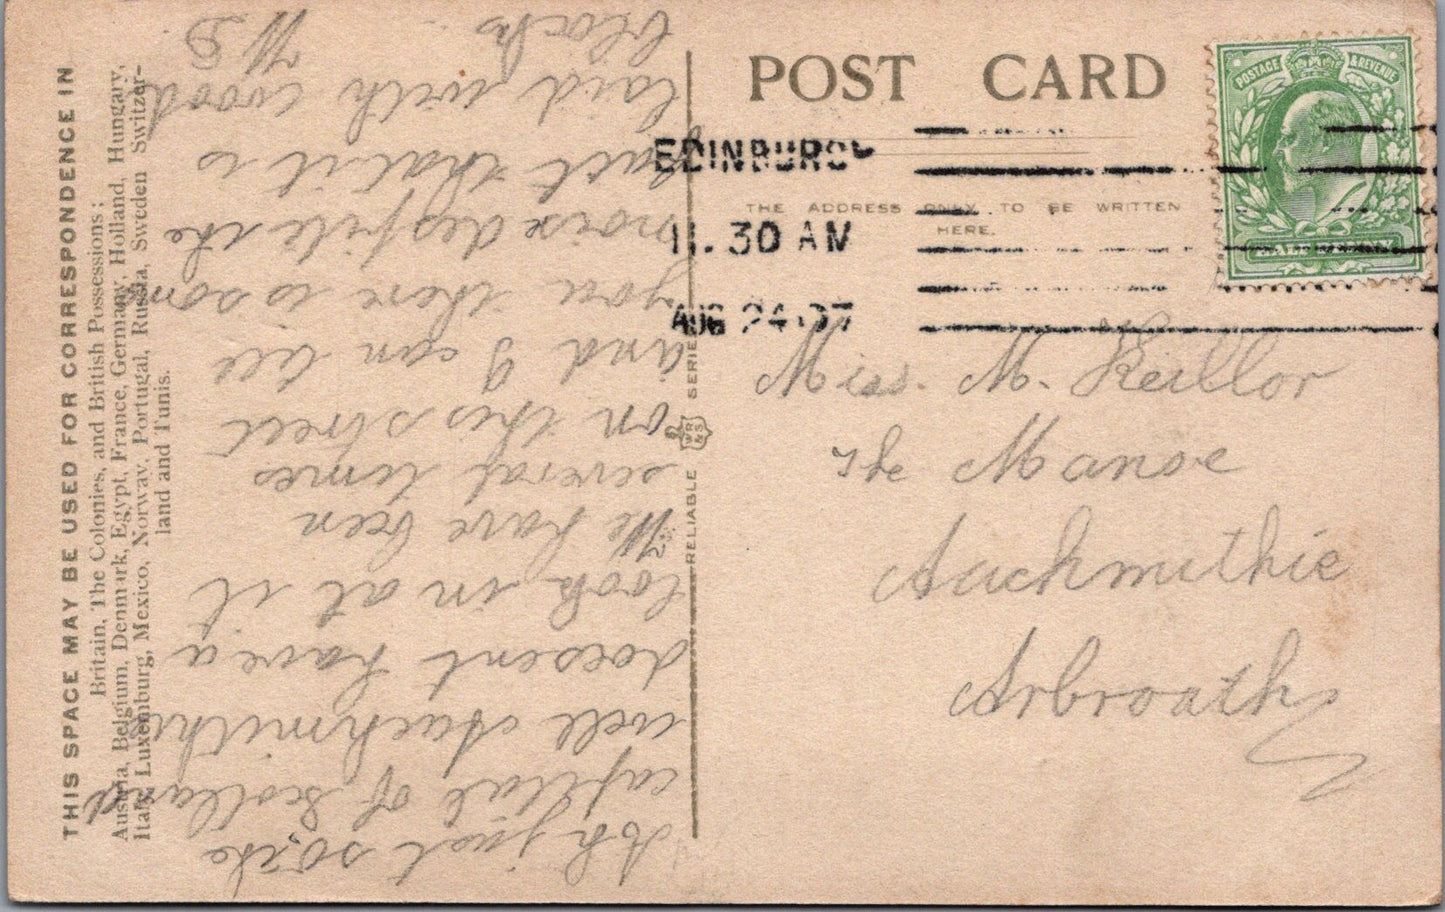 POST CARD
POSTAGE & REVENUE
HALFPENNY
EDINBURGH
11.30 AM
AUG 24 07
THE ADDRESS ONLY TO BE WRITTEN
HERE.
Miss. M. Keillor
The Manse
Auchmithie
Arbroath
THIS SPACE MAY BE USED FOR CORRESPONDENCE IN
Britain, The Colonies, and British Possessions:
Austria, Belgium, Denmark, Egypt, France, Germany, Holland, Hungary,
Italy, Luxemburg, Mexico, Norway, Portugal, Russia, Sweden Switzer-
land and Tunis.
RELIABLE WR&S SERIES
Ah just so, the
capital of Scotland
well Auchmithie
doesent have a
look in at it
We have been
several times
on this street
and I can tell
you there is some
noise despite the
fact that it is
laid with wood
blocks
WS